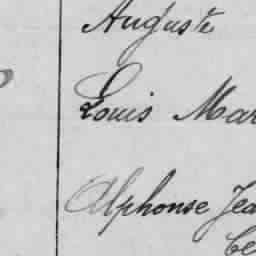 Auguste
Louis Mar
Alphonse Jea
Ce